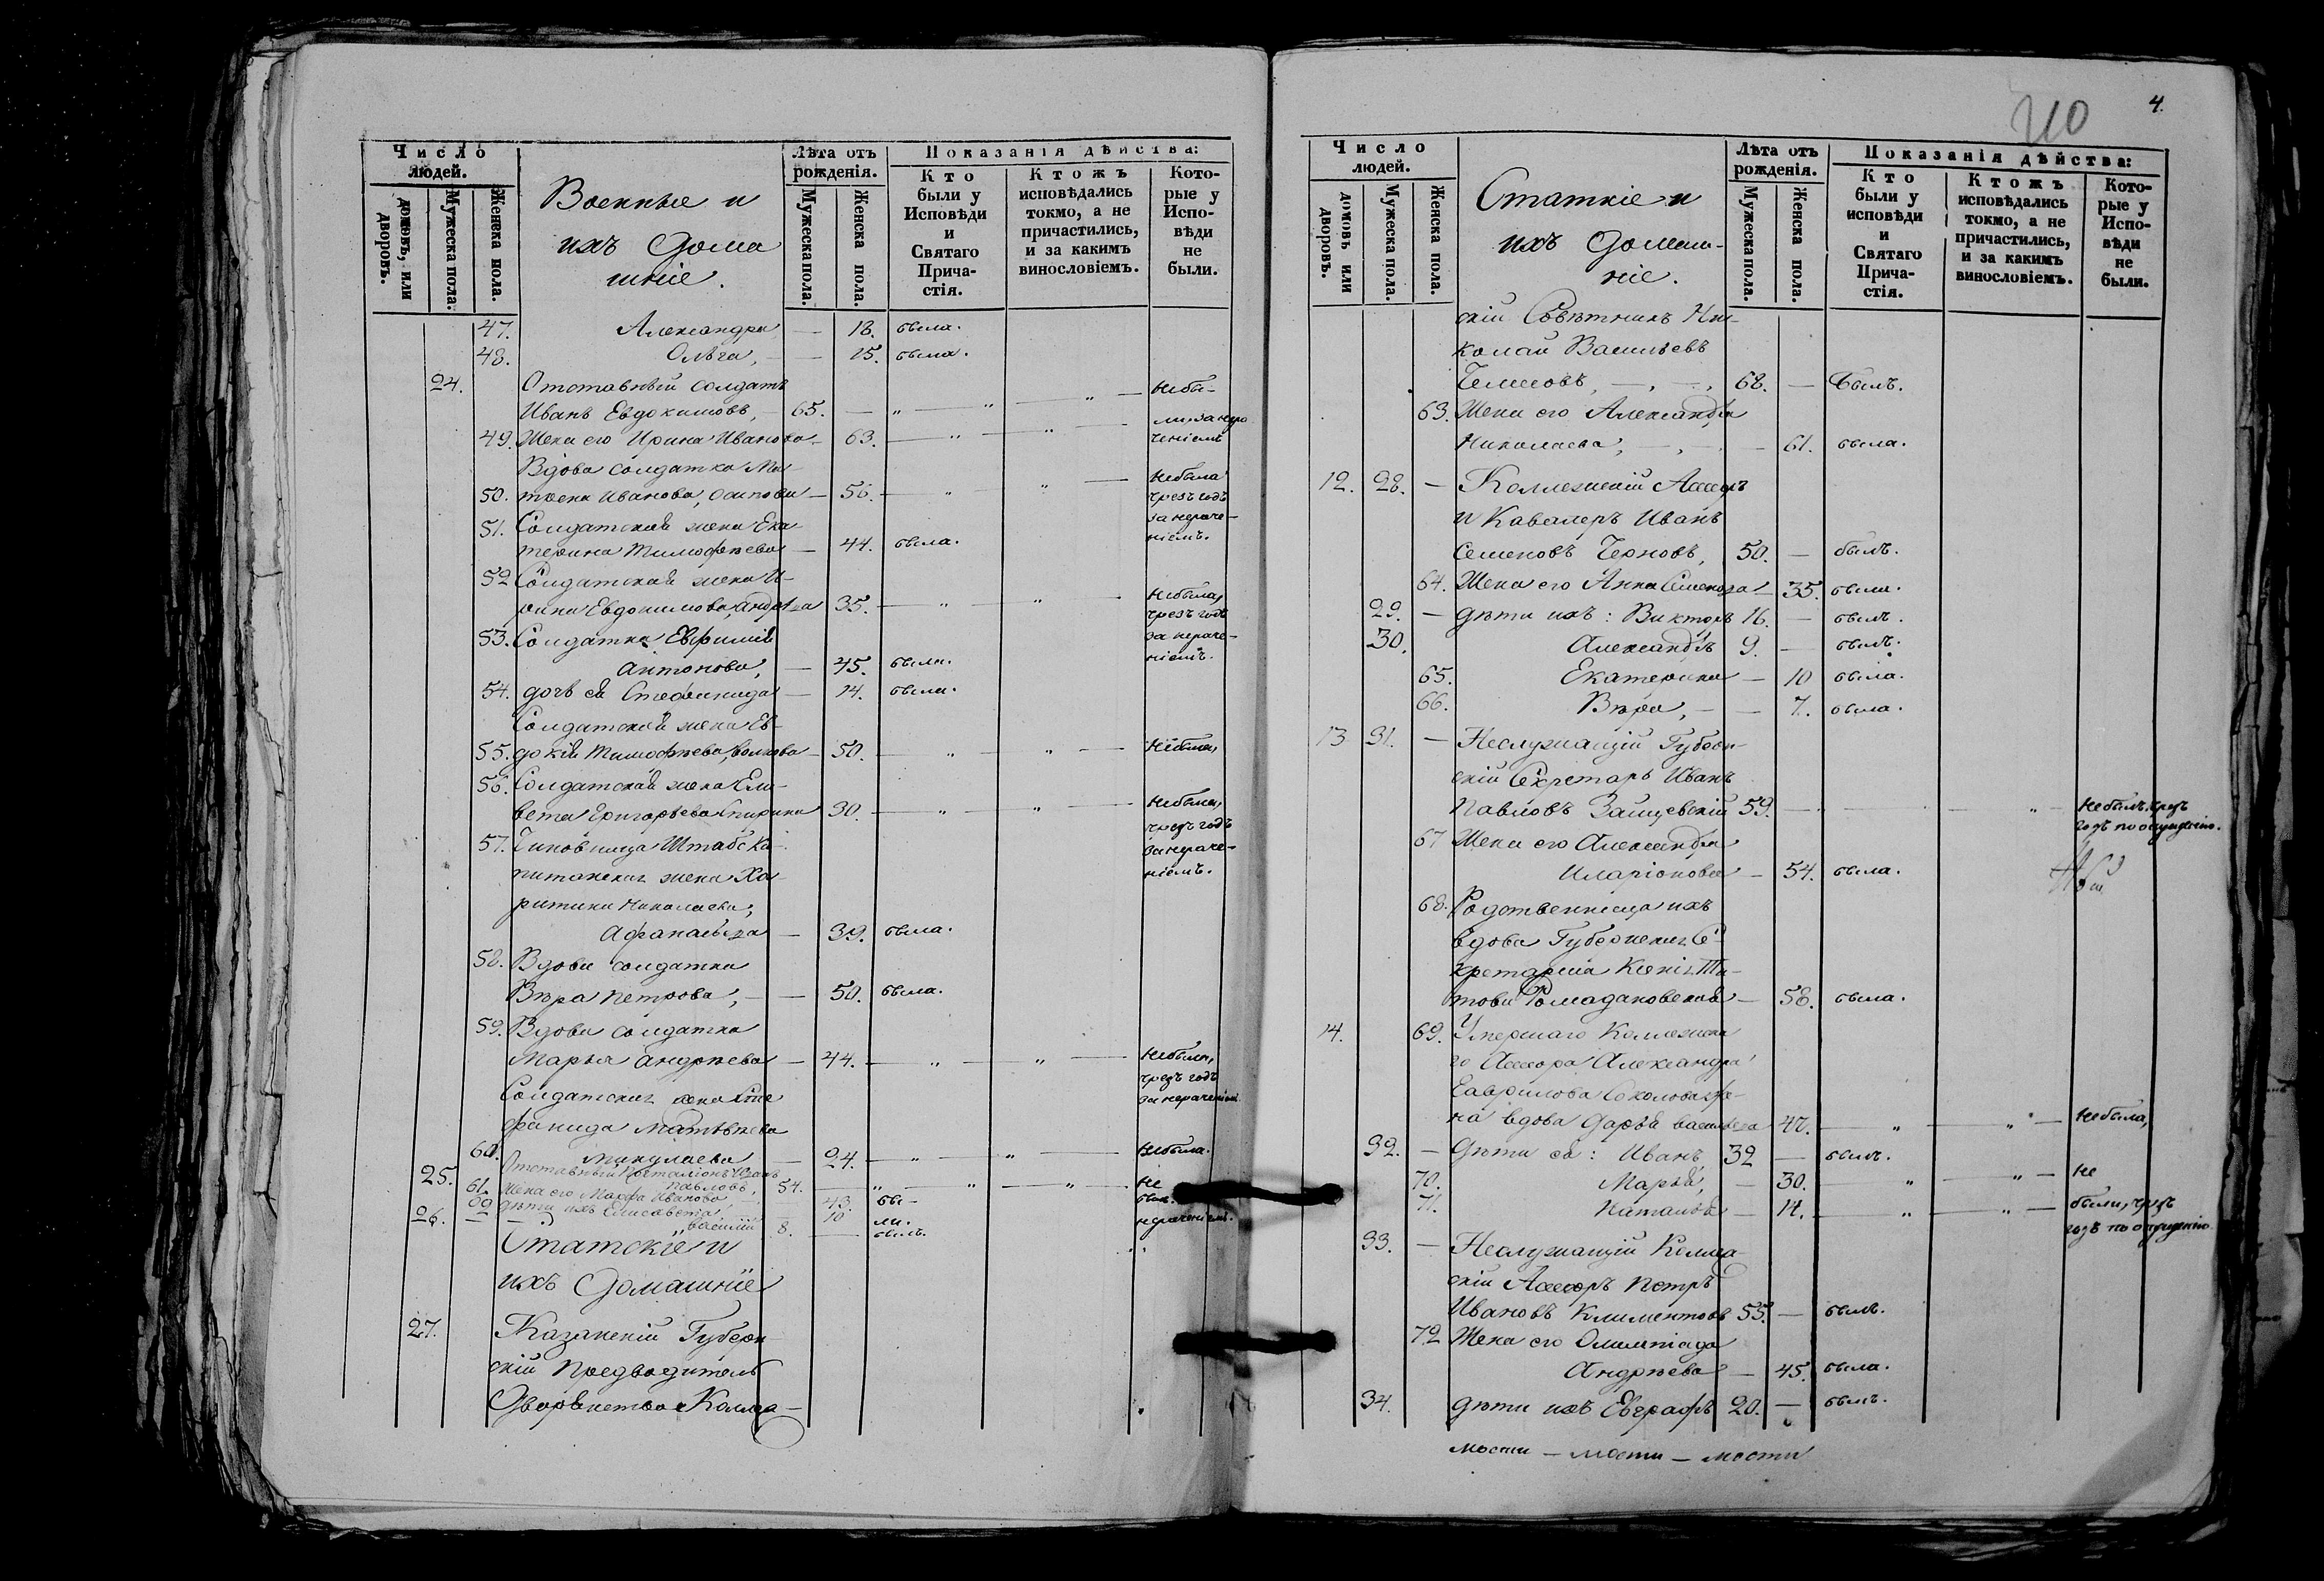 Число людей.
домовъ, или дворовъ.
Мужеска пола.
Женска пола.
Военные и
ихъ дома
шніе.
Лѣта отъ рожденія.
Мужеска пола.
Женска пола.
Показанія дѣйства:
Кто были у Исповѣди и Святаго Прича-стія.
Ктожъ исповѣдались токмо, а не причастились, и за какимъ винословіемъ.
Кото-рые у Испо-вѣди не были.
47. Александра — 18. была.
48. Ольга, — — 15. была.
24. Отставный солдатъ небы-
Иванъ Евдокимовъ, — 65. — „ „ „ —
49. Жена его Ирина Иванова — 63. — „ „ —
Вдова солдатка Ма-
50. трена Иванова, Осипова — 56. — „ „ — небыла
чрезъ годъ
за нераче-
ніемъ.
51. Солдатская жена Ека-
терина Тимофѣева — 44. была.
52 Солдатская жена И-
рина Евдокимова, 35. — „ „ — небыла,
чрезъ годъ
за нераче-
ніемъ.
53. Солдатка Евфимія
Антонова, — 45. была.
54. дочь ея Стефанида — 14. была.
Солдатская жена Ев-
55. докія Тимофѣева, Волкова — 50. — „ „ — небыла,
56. Солдатская жена Ели-
вета Григорьева 30. — „ „ — небыла,
чрезъ годъ
за нераче-
ніемъ.
57. Чиновница Штабсъ Ка-
питанская жена Ха-
ритина Николаева,
Афанасьева — 39. была.
58. Вдова солдатка
Вѣра Петрова, — — 50. была.
59. Вдова солдатка
Марья Андрѣева — 44. — „ „ — небыла,
чрезъ годъ
за нераченіемъ.
Солдатская жена Сте
фанида Матвѣева
60. Микулаева — 24. — „ „ — небыла.
25. Отставный Почталіонъ Иванъ
Павловъ, 54. — „ „ „ — не
61. Жена его Марфа Иванова — 43. бы- были.
62 дѣти ихъ Елисавета — 10 ли. нераченіемъ.
26. — Василій 8. — былъ.
Статскіе и
ихъ домашніе
27. Казанскій Губерн-
скій Предводитель
Дворянства Колле-
210
4.
Число людей.
домовъ или дворовъ.
Мужеска пола.
Женска пола.
Статкіе и
ихъ домаш-
ніе.
Лѣта отъ рожденія.
Мужеска пола.
Женска пола.
Показанія дѣйства:
Кто были у исповѣди и Святаго Прича-стія.
Ктожъ исповѣдались токмо, а не причастились, и за какимъ винословіемъ.
Кото-рые у Испо-вѣди не были.
скій Совѣтникъ Ни-
колай Васильевъ
68. — былъ.
63. Жена его Александра
Николаева, — 61. была.
12. 28. — Коллежскій Ассесоръ
и Кавалеръ Иванъ
Семеновъ Черновъ, 50. — былъ.
64. Жена его Анна Семенова — 35. была.
29. — дѣти ихъ: Викторъ 16. — былъ.
30. Александръ 9. — былъ.
65. Екатерина — 10 была.
66. Вѣра, — — 7. была.
13 31. — Неслужащій Губерн-
скій Секретарь Иванъ
Павловъ Зайцевскій 59. — „ — небылъ, чрезъ
годъ по опущенію.
67 Жена его Александра
Иларіонова — 54. была.
68. Родственница ихъ
вдова Губернская Се-
кретарша Ксенія Ти-
това Ромадановская — 58. была.
14. 69. Умершаго Коллежска
го Ассесора Александра
Гаврилова Соколова же-
на вдова Дарья Васильева 47. — „ „ — небыла,
32. — дѣти ея: Иванъ 32 — былъ.
70. Марья, — 30. „ „ — не
71. Наталья — 14. — „ „ — были, чрезъ
годъ по опущенію.
33. — Неслужащій Коллеж-
скій Ассесоръ Петръ
Ивановъ Климентовъ 55. — былъ.
72 Жена его Олимпіада
Андрѣева — 45. была.
34. дѣти ихъ Евграфъ 20. — былъ.
мости — мости — мости